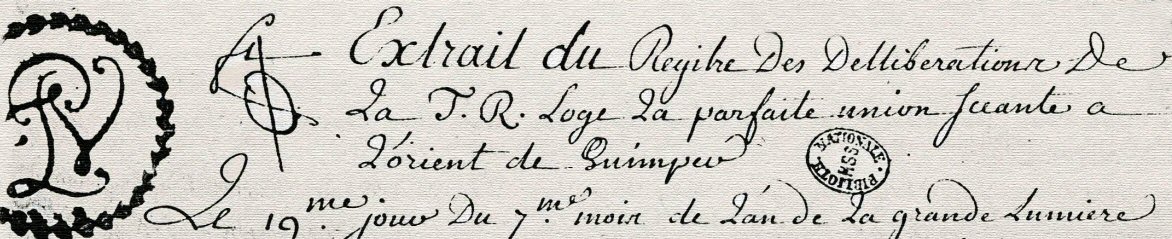 Extrait du Regitre Des Delliberations De
La T. R. Loge La parfaite union sceante a
L'orient de Quimper
BIBLIOTH. NATIONALE MSS
Le 19.me jour Du 7.me mois de L'an de La grande Lumiere